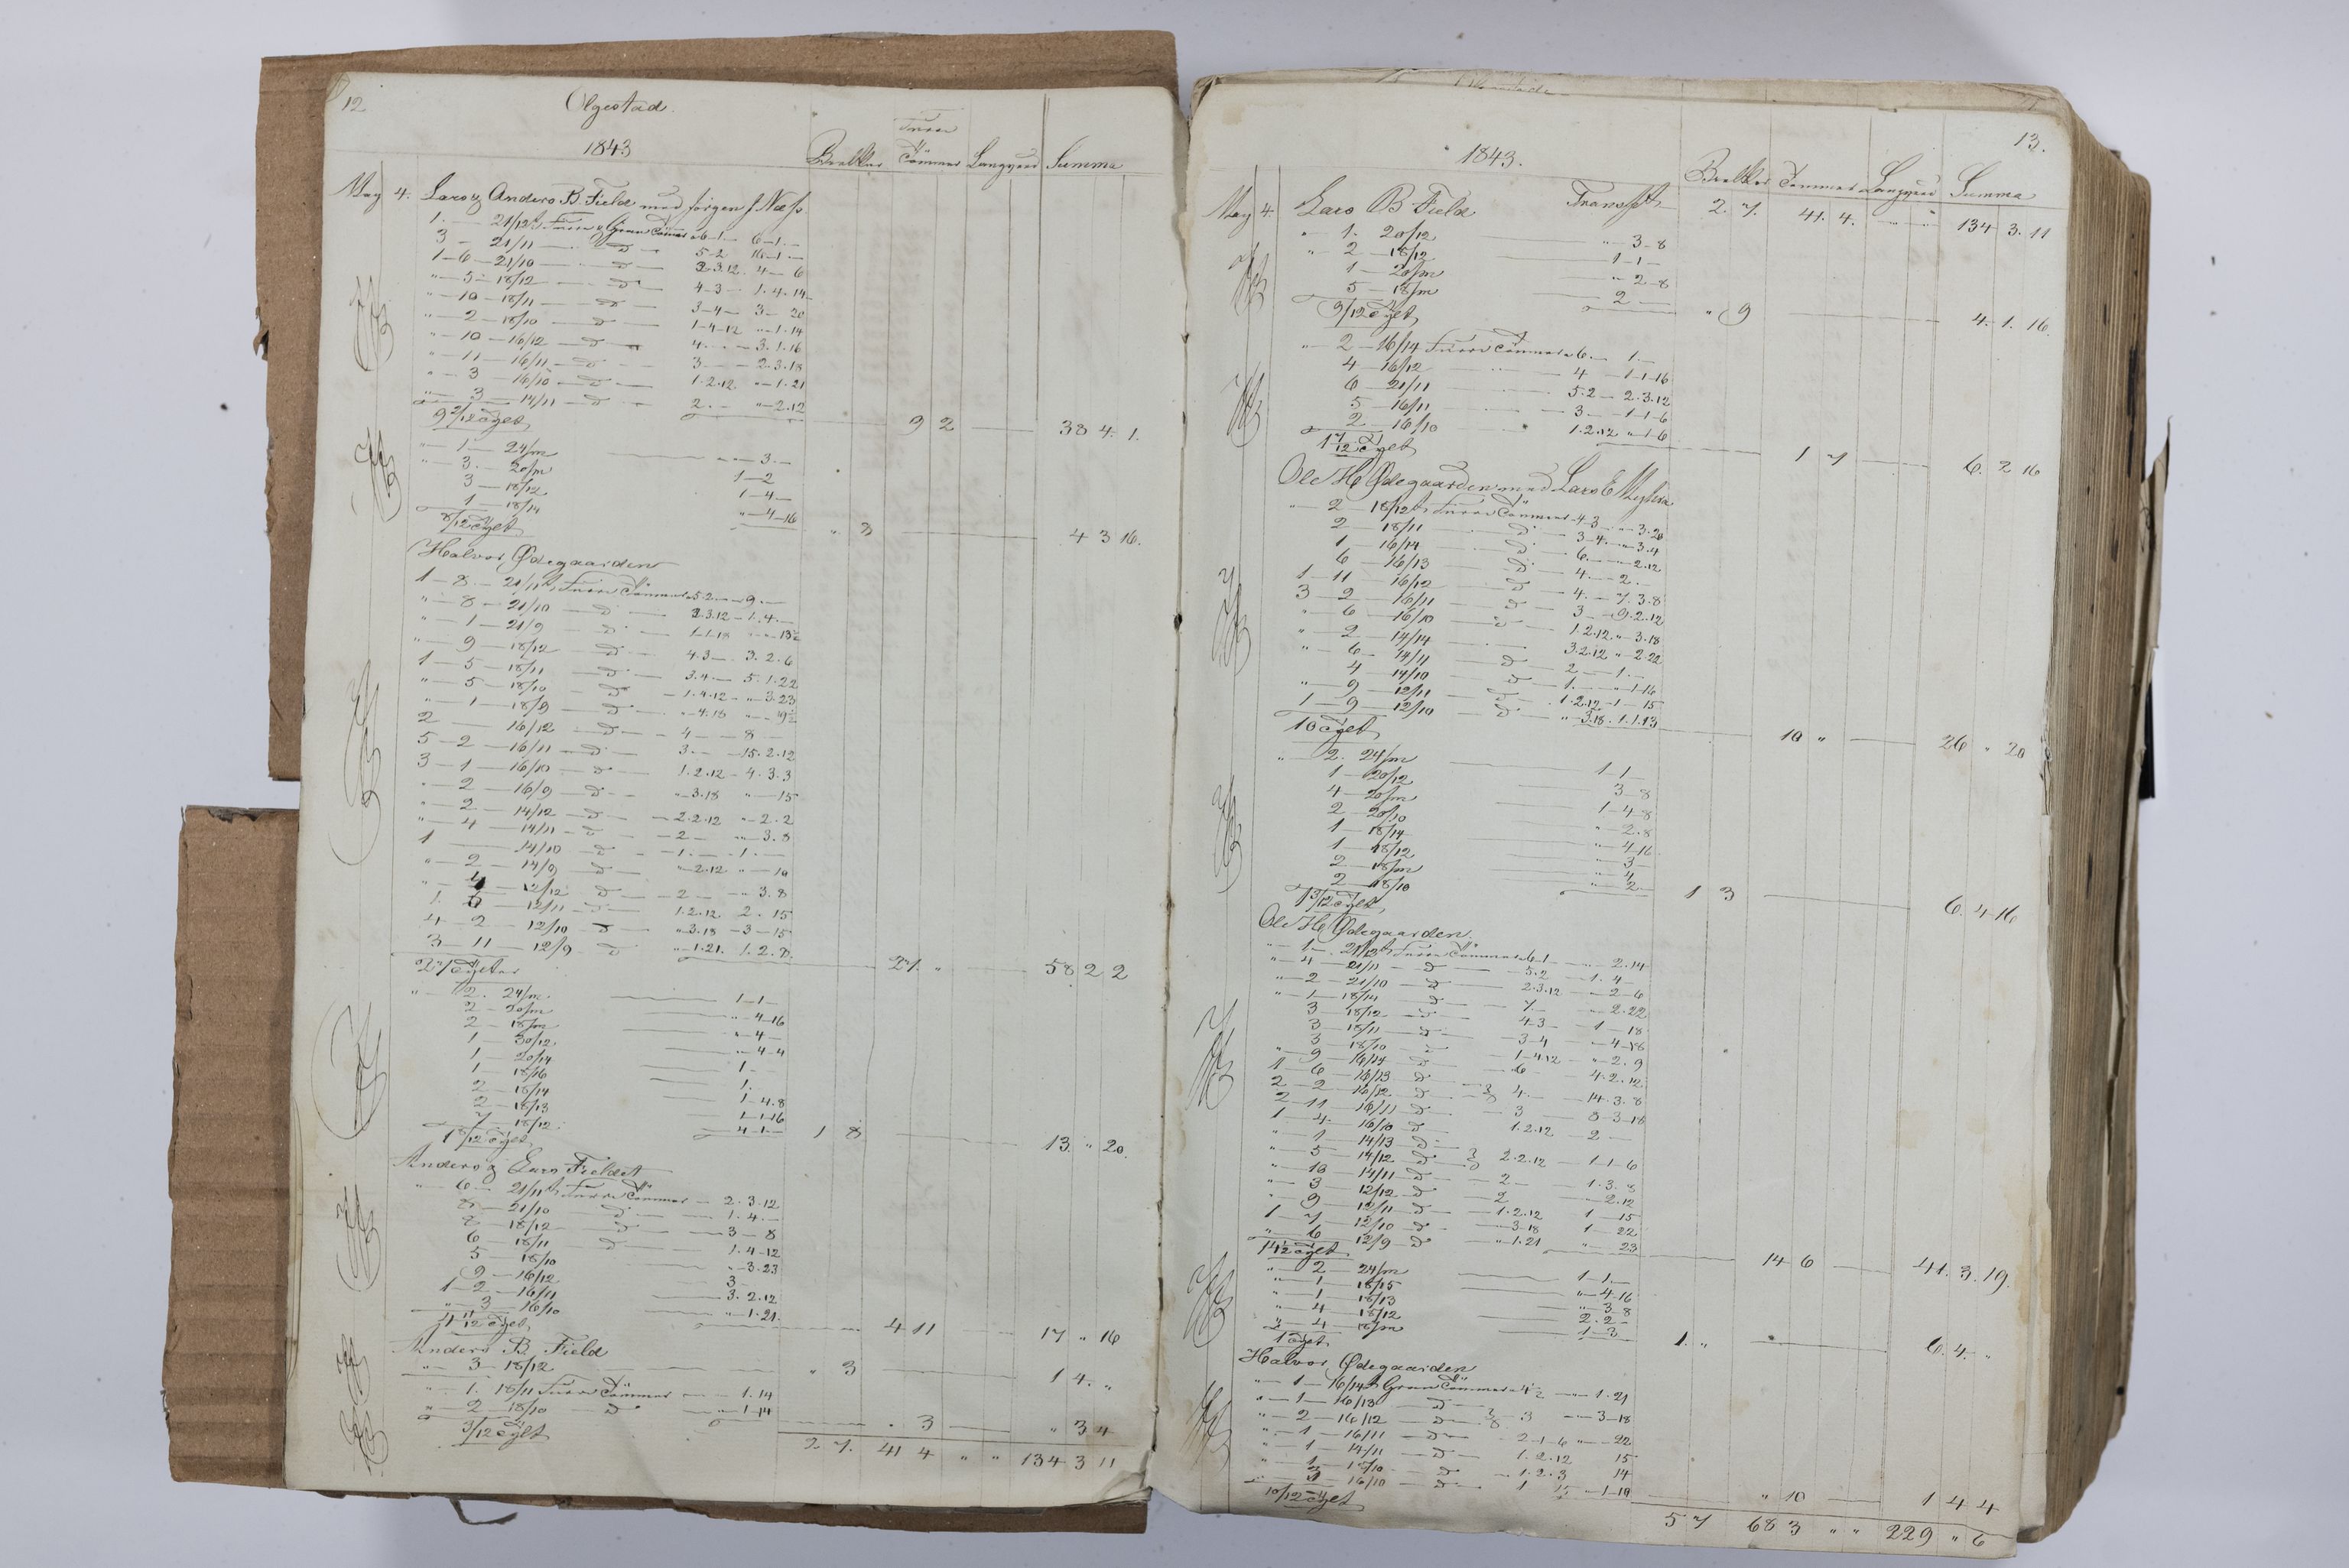 12
Olgestad.
1843
Furru
Bielker Tömmer Langved Summa
May 4. Lars og Anders B. Field med Jörgen J. Næss
1. — 21/12 t Furru & Gran Tömmer a 6-1- 6-1-
3 — 21/11 — d — 5-2 16-1-
1-6-21/10 — d — 2.3.12. 4-6
"-5-18/12 — d — 4-3- 1.4.14
"-10-18/11 — d — 3-4- 3-20
"-2-18/10 — d — 1-4-12 "-1.14
"-10-16/12 — d — 4. — 3.1.16
"-11-16/11 — d — 3 — 2.3.18
"-3-16/10 — d — 1.2.12 "-1.21
"-3-14/11 — d — 2. — "-2.12
9 2/12 Tylt 9 2 38 4. 1.
"-1-24/m — "-3.-
"-3.-20/m 1-2
3-18/12 1-4-
1-18/14 "-4-16
8/12 Tylt " 8 4 3 16.
Halvor Ödegaarden
1-8-21/11 t Furru Tömmer a 5.2 — 9.-
"-8-21/10 — d — 2.3.12-1.4.-
"-1-21/9 — d — 1-1.18
"-9-18/12 — d — 4.3-. 3.2.6
1-5-18/11 — d — 3.4.- 5.1.22
"-5-18/10 — d — 1.4.12-"-3.23
"-1-18/9 — d — "-4.18
2 — 16/12 — d — 4 — 8 -
5-2-16/11 — d — 3.- -15.2.12
3-1-16/10 — d — 1.2.12-4.3.3
"-2-16/9 — d — "-3.18 "-15
"-2-14/12 — d — 2.2.12 "-2.2
"-4-14/11 — d — 2- "-3.8
1 — 14/10 — d — 1.- -1.-
"-2-14/9 — d — "-2.12 "-10
"-4-12/12 — d — 2 — "-3.8
1. 6-12/11 — d — 1.2.12 2.15
4-2-12/10 — d — "-3.18-3-15
3-11-12/9 — d — "-1.21. 1.2.8.
27 Tylter 27. " 58 2 2
"-2. 24/m — 1-1-
2-20/m — "-4-16
2-18/m "-4-
1-30/12 "-4-4
1-20/14 1-
1-18/16 1.
2-18/14 1-4.8
2-18/13 1-1-16
7-18/12. 4-1-
1 8/12 Tylt 1 8 13. " 20.
Anders og Lars Fieldet
"-6-21/11 t Furru Tömmer — 2.3.12
8-21/10 — d — 1.4.-
8-18/12 — d — 3-8
6-18/11 d — 1.4-12
5-18/10 "-3.23
9-16/12 3-
1-2-16/11 3.2.12
"-3-16/10 "-1.21.
4 11/12 Tylt 4 11 17 " 16
Anders B. Field
"-3-18/12 " 3 1 4. "
"-1. 18/11 Furru Tömmer — 1.14
"-2-18/10 d — "-1-14
3/12 Tylt " 3 " 3 4
2 7. 41 4 " " 134 3 11
13.
1843.
Bielker Tömmer Langved Summa
May 4 Lars B Field Transpt 2. 7. 41. 4. 134 3. 11
" 1. 20/12 "-3-8
" 2-18/12 1-1-
1-20/m "-2-8
5-18/m 2-
9/12 Tylt " 9 4. 1. 16.
"-2-16/14 Furru Tömmer a 6.- 1.-
4-16/12 4-1-1-16
6-21/11 5.2-2.3.12
5-16/11 3-1-1-6
2-16/10 1.2.12 "-1-6
1 7/12 Tylt 1 7 6. 2 16
Ole H. Ödegaarden med Lars E
"-2-18/12 t Furru Tömmer 4-3-"-3.20
2-18/11 d 3-4.-"-3.4
1-16/14 d 6.- "-2.12
6-16/13 d 4.-2.-
1-11-16/12 d 4.-7.3.8
3-2-16/11 d 3-9.2.12
"-6-16/10 d 1.2.12 "-3.18
"-2-14/14 3.2.12 "-2.22
"-6-14/11 d 2-1.-
4-14/10 d 1.-"-1-16
"-9-12/11 d 1.2.12-1-15
1-9-12/10 d "-3.18.1.1.13
10 Tylt 10 " 26 " 20
"-2. 24/m 1-1-
1-20/12 3-8
4-20/m 1-4-8
2-20/10 "-2.8
1-18/14 "-4-16
1-18/12 "-3-
2-18/m "-4
2-18/10 "-2-
1 3/12 Tylt 1 3 6. 4 16
Ole H. Ödegaarden.
"-1-21/12 t Furru Tömmer a 6-1 — 2.14
"-4-21/11 — d — 5.2 — 1.4-
"-2-21/10 — d — 2.3.12 — 2-6
"-1-18/14 d — 7.- "-2.22
3-18/12 — d 4-3 — 1-18
3-18/11 — d 3-4 — "-4-18
3-18/10 — d 1-4.12-"-2.9
"-9-16/14 d 6- 4.2.12
1-6-16/13 d
2-2-16/12 d 4.- -14.3.8
2-11-16/11 d 3 — 8-3-18
1-4-16/10 d 1.2.12-2-
"-1-14/13 d
"-5-14/12 d 2.2.12 — 1-1-6
"-10-14/11 d 2- -1.3.8
"-3-12/12 d 2 "-2.12
"-9-12/11 d 1.2.12 1-15
1-7-12/10 d "-3-18 1-22
"-6-12/9 d "-1.21 "-23
14 6/12 Tylt 14 6 41. 3. 19.
"-2-24/m 1-1-
"-1-18/15 "-4-16
"-1-18/13 "-3-8
"-4-18/12 2-2-
"-4-18/m 1-3-
1 Tylt 1. " 6. 4. "
Halvor Ödegaarden
"-1-16/14 t Gran Tömmer a — 1.21
"-1-16/13 — d
"-2-16/12 — d — 3 — 3-18
"-1-16/11 — d — 2-1-6 "-22
"-1-14/11 — d — 1.2.12 15
"-1-18/10 — d — 1.2.3 14
"-3-16/10 — d — 1 "-1-19
10/12 Tylt " 10 1 4 4
5 7 68 3 " " 229 " 6